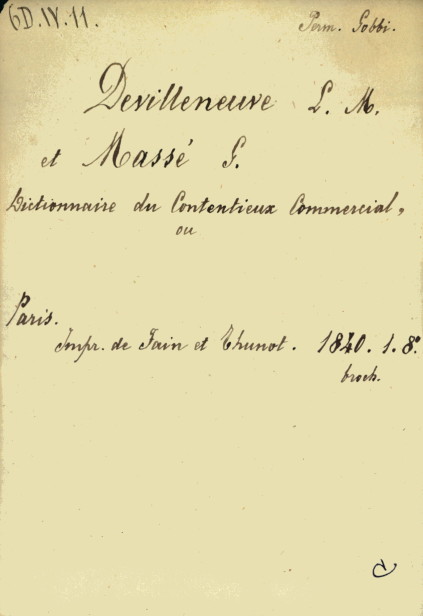 6D.IV.11.
Perm. Gobbi.
Devilleneuve L. M.
et Massé G.
Dictionnaire du Contentieux Commercial,
ou
Paris.
Impr. de Fain et Thunot. 1840. 1. 8º
broch.